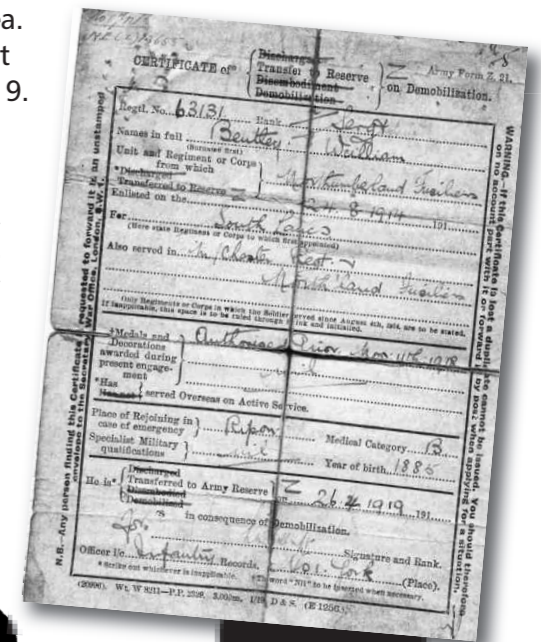 ea.
t
9.
CERTIFICATE of
Discharge
Transfer to Reserve
Disembodiment
Demobilization
Z
on Demobilization.
Army Form Z. 21.
Regtl. No. 63131 Rank Sergt
Names in full Bentley William
(Surname first)
Unit and Regiment or Corps
from which
*Discharged
Transferred to Reserve Z
Northumberland Fusiliers
Enlisted on the 24.8.1914 191
For South Lancs
(Here state Regiment or Corps to which first appointed)
Also served in M/Chester Regt
North'land Fusiliers
Only Regiments or Corps in which the Soldier served since August 4th, 1914, are to be stated.
If inapplicable, this space is to be ruled through in ink and initialled.
Authorised Prior Nov 11th 1918
†Medals and
Decorations
awarded during
present engage-
ment
*Has
Has not
served Overseas on Active Service.
Place of Rejoining in
case of emergency
Ripon
Medical Category B
Specialist Military
qualifications
Year of birth 1885
He is*
Discharged
Transferred to Army Reserve
Disembodied
Demobilized
Z
on 26.4.1919 191
in consequence of Demobilization.
Signature and Rank.
Officer i/c Infantry Records. York (Place).
* Strike out whichever is inapplicable. † The word "Nil" to be inserted when necessary.
(20996). Wt. W 8211—P.P. 2329. 3,000m. 1/19. D & S. (E 1256.)
N.B.—Any person finding this Certificate is requested to forward it in an unstamped
envelope to the Secretary, War Office, London, S.W. 1.
WARNING.—If this Certificate is lost a duplicate cannot be issued. You should therefore
on no account part with it or forward it by post when applying for a situation.